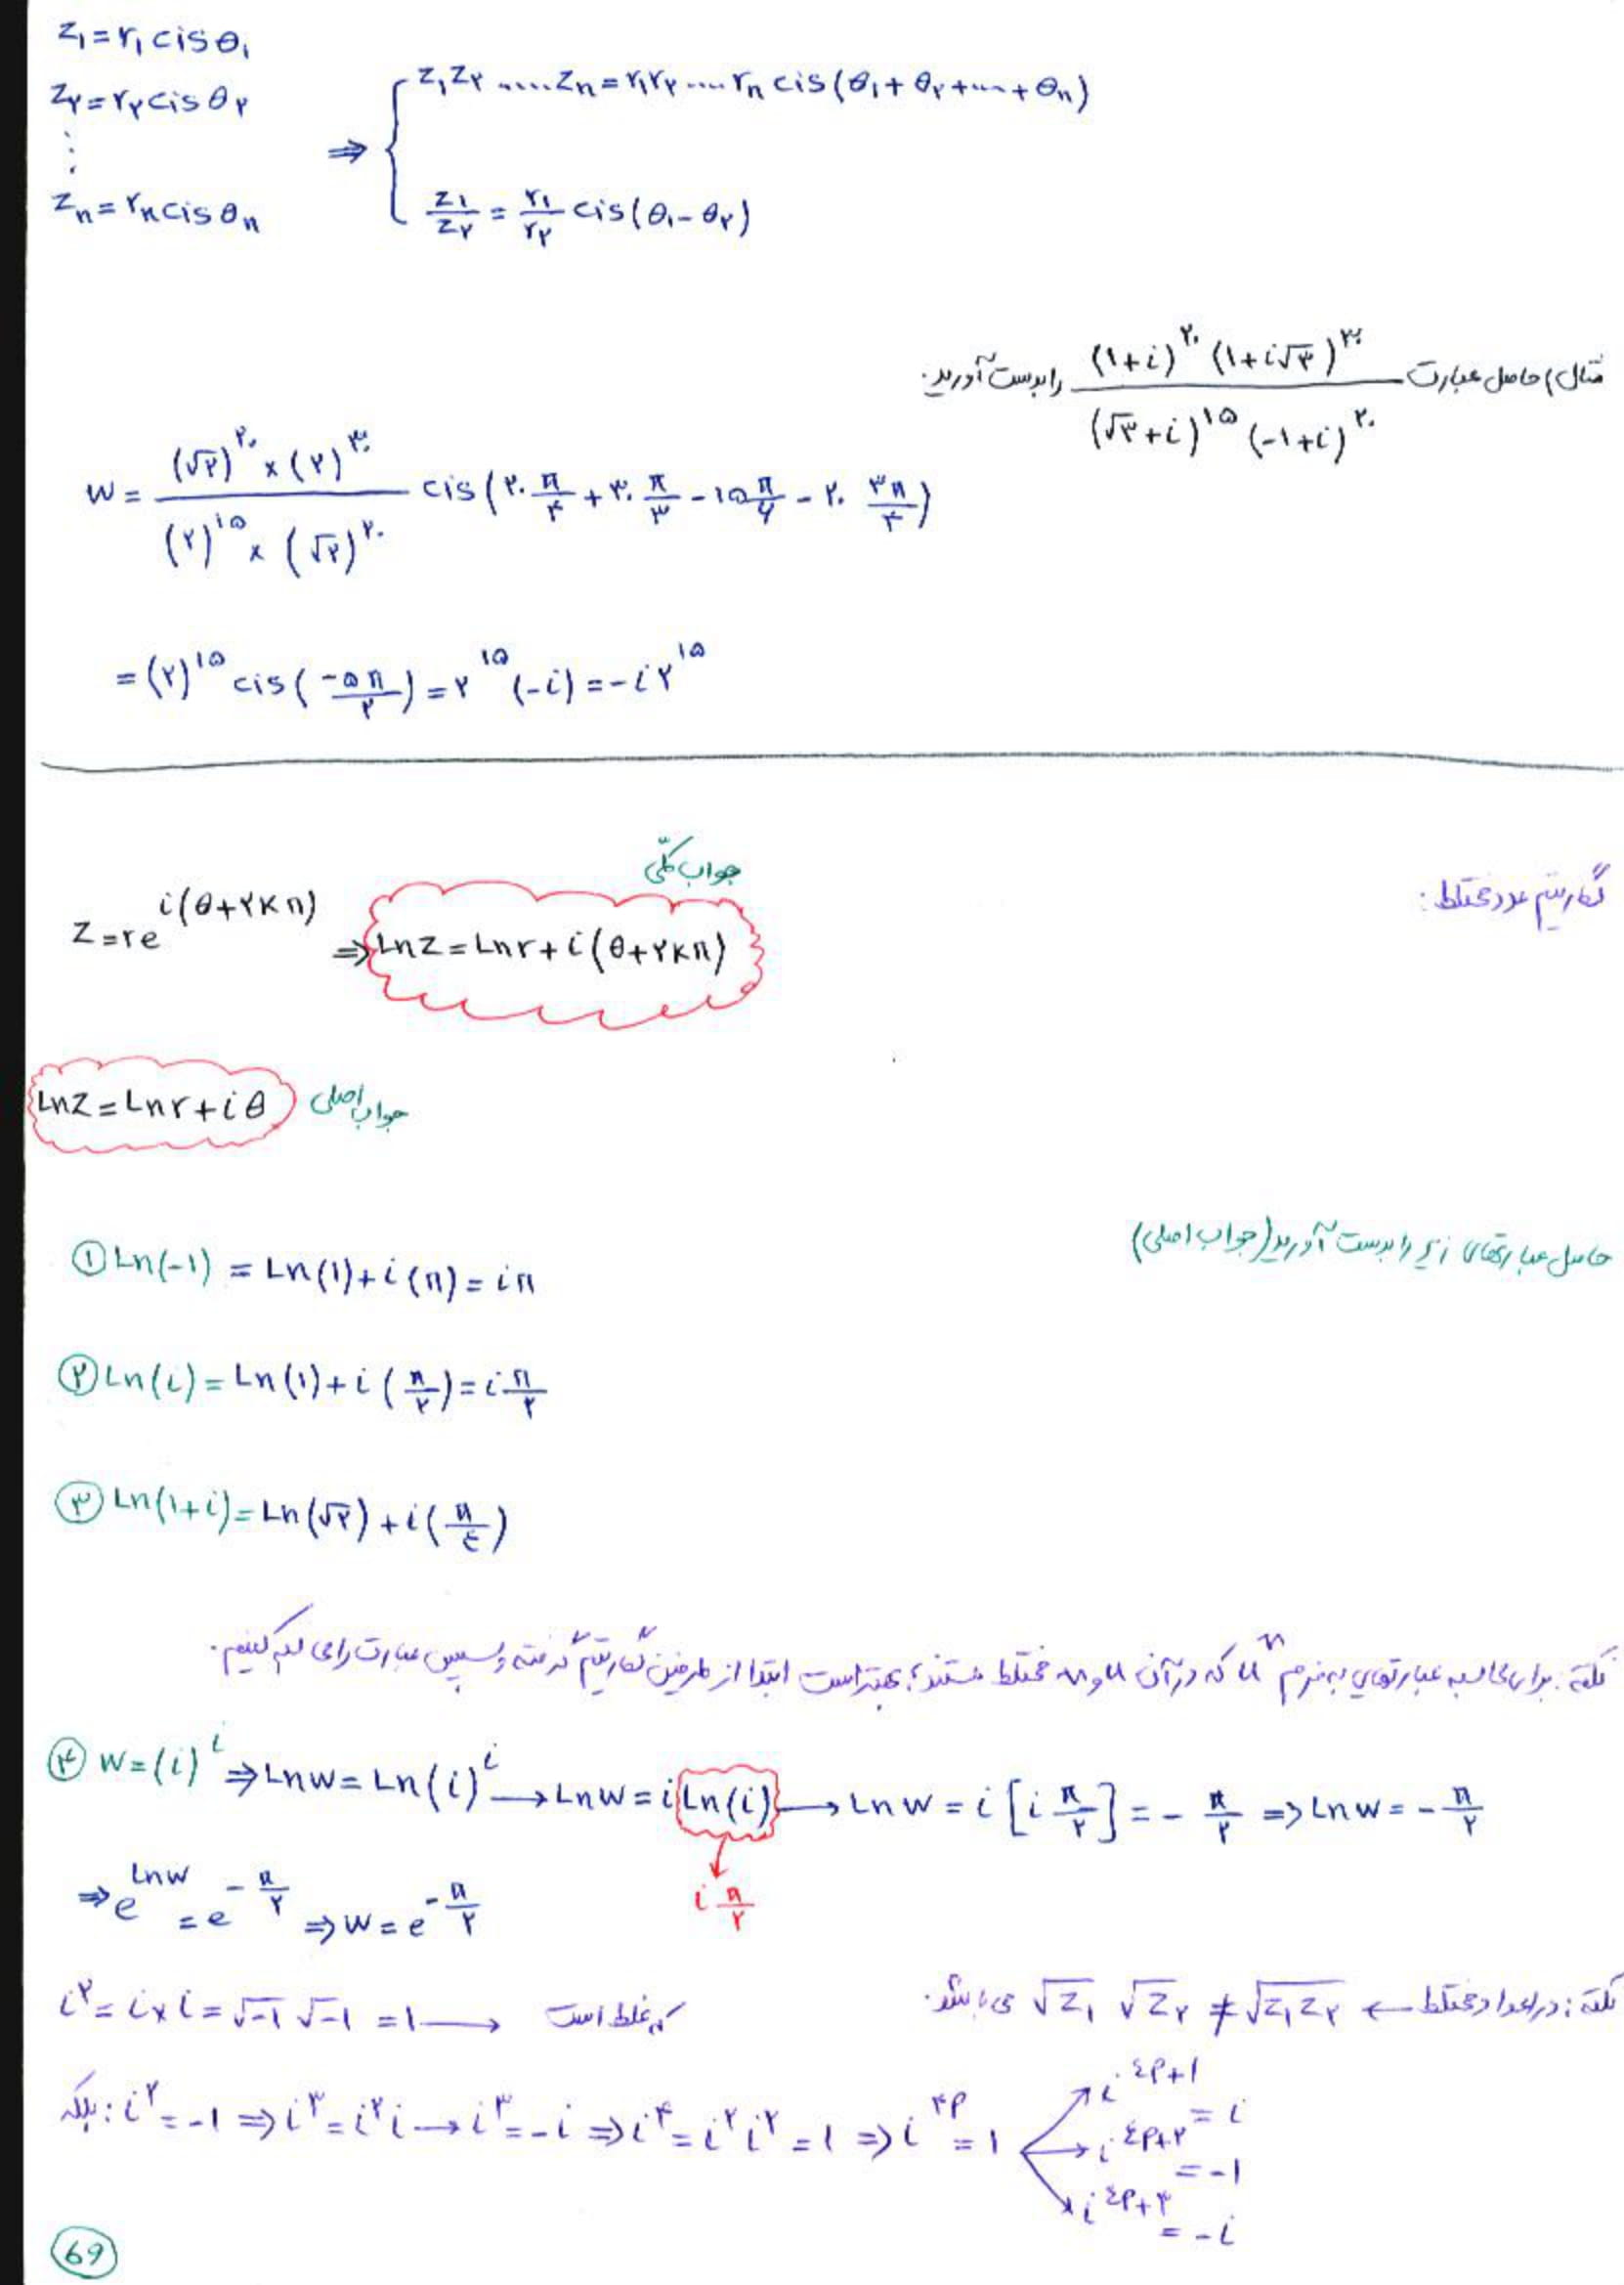 z₁ = r₁ cis θ₁
z₂ = r₂ cis θ₂
⋮
zₙ = rₙ cis θₙ
⇒ { z₁z₂ .... zₙ = r₁r₂ .... rₙ cis(θ₁ + θ₂ + ... + θₙ)
z₁/z₂ = r₁/r₂ cis(θ₁ - θ₂)
مثال) حاصل عبارت ((۱+i)^۲۰ (۱+i√۳)^۳۰) / ((√۳+i)^۱۵ (-۱+i)^۲۰) را بدست آورید.
w = ((√۲)^۲۰ × (۲)^۳۰) / ((۲)^۱۵ × (√۲)^۲۰) cis(۲۰ π/۴ + ۳۰ π/۳ - ۱۵ π/۶ - ۲۰ ۳π/۴)
= (۲)^۱۵ cis(-۵π/۲) = ۲^۱۵ (-i) = -i۲^۱۵
لگاریتم عدد مختلط:
جواب کلّی
z = re^(i(θ+۲kπ)) ⇒ Ln z = Ln r + i(θ+۲kπ)
Ln z = Ln r + iθ جواب اصلی
حاصل عبارتهای زیر را بدست آورید (جواب اصلی)
① Ln(-۱) = Ln(۱) + i(π) = iπ
② Ln(i) = Ln(۱) + i(π/۲) = i π/۲
③ Ln(۱+i) = Ln(√۲) + i(π/٤)
نکته: برای محاسبه عبارتهای به فرم uⁿ که در آن u و n مختلط هستند؛ بهتر است ابتدا از طرفین لگاریتم گرفته و سپس عبارت را حل کنیم.
④ w = (i)^i ⇒ Ln w = Ln(i)^i → Ln w = i Ln(i) → Ln w = i[i π/۲] = - π/۲ ⇒ Ln w = - π/۲
i π/۲
⇒ e^(Ln w) = e^(-π/۲) ⇒ w = e^(-π/۲)
نکته: در اعداد مختلط ← √z₁ √z₂ ≠ √(z₁z₂) می باشد.
i^۲ = i × i = √-۱ √-۱ = ۱ → که غلط است
بلکه: i^۲ = -۱ ⇒ i^۳ = i^۲ i → i^۳ = -i ⇒ i^۴ = i^۲ i^۲ = ۱ ⇒ i^(۴p) = ۱
i^(٤p+۱) = i
i^(٤p+۲) = -۱
i^(٤p+۳) = -i
69